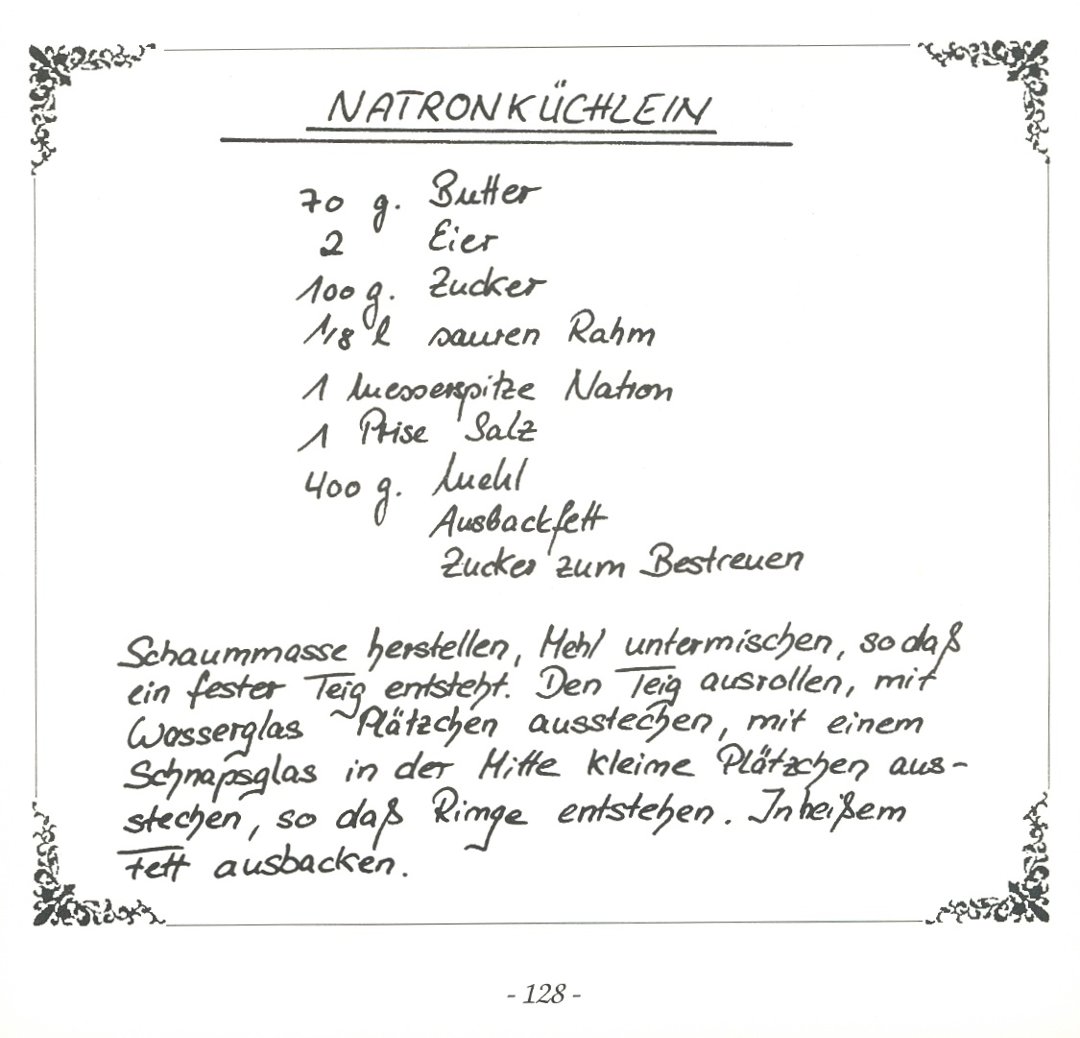 NATRONKÜCHLEIN
70 g. Butter
2 Eier
100 g. Zucker
1/8 l sauren Rahm
1 Messerspitze Natron
1 Prise Salz
400 g. Mehl
Ausbackfett
Zucker zum Bestreuen
Schaummasse herstellen, Mehl untermischen, so daß
ein fester Teig entsteht. Den Teig ausrollen, mit
Wasserglas Plätzchen ausstechen, mit einem
Schnapsglas in der Mitte kleine Plätzchen aus-
stechen, so daß Ringe entstehen. In heißem
Fett ausbacken.
- 128 -